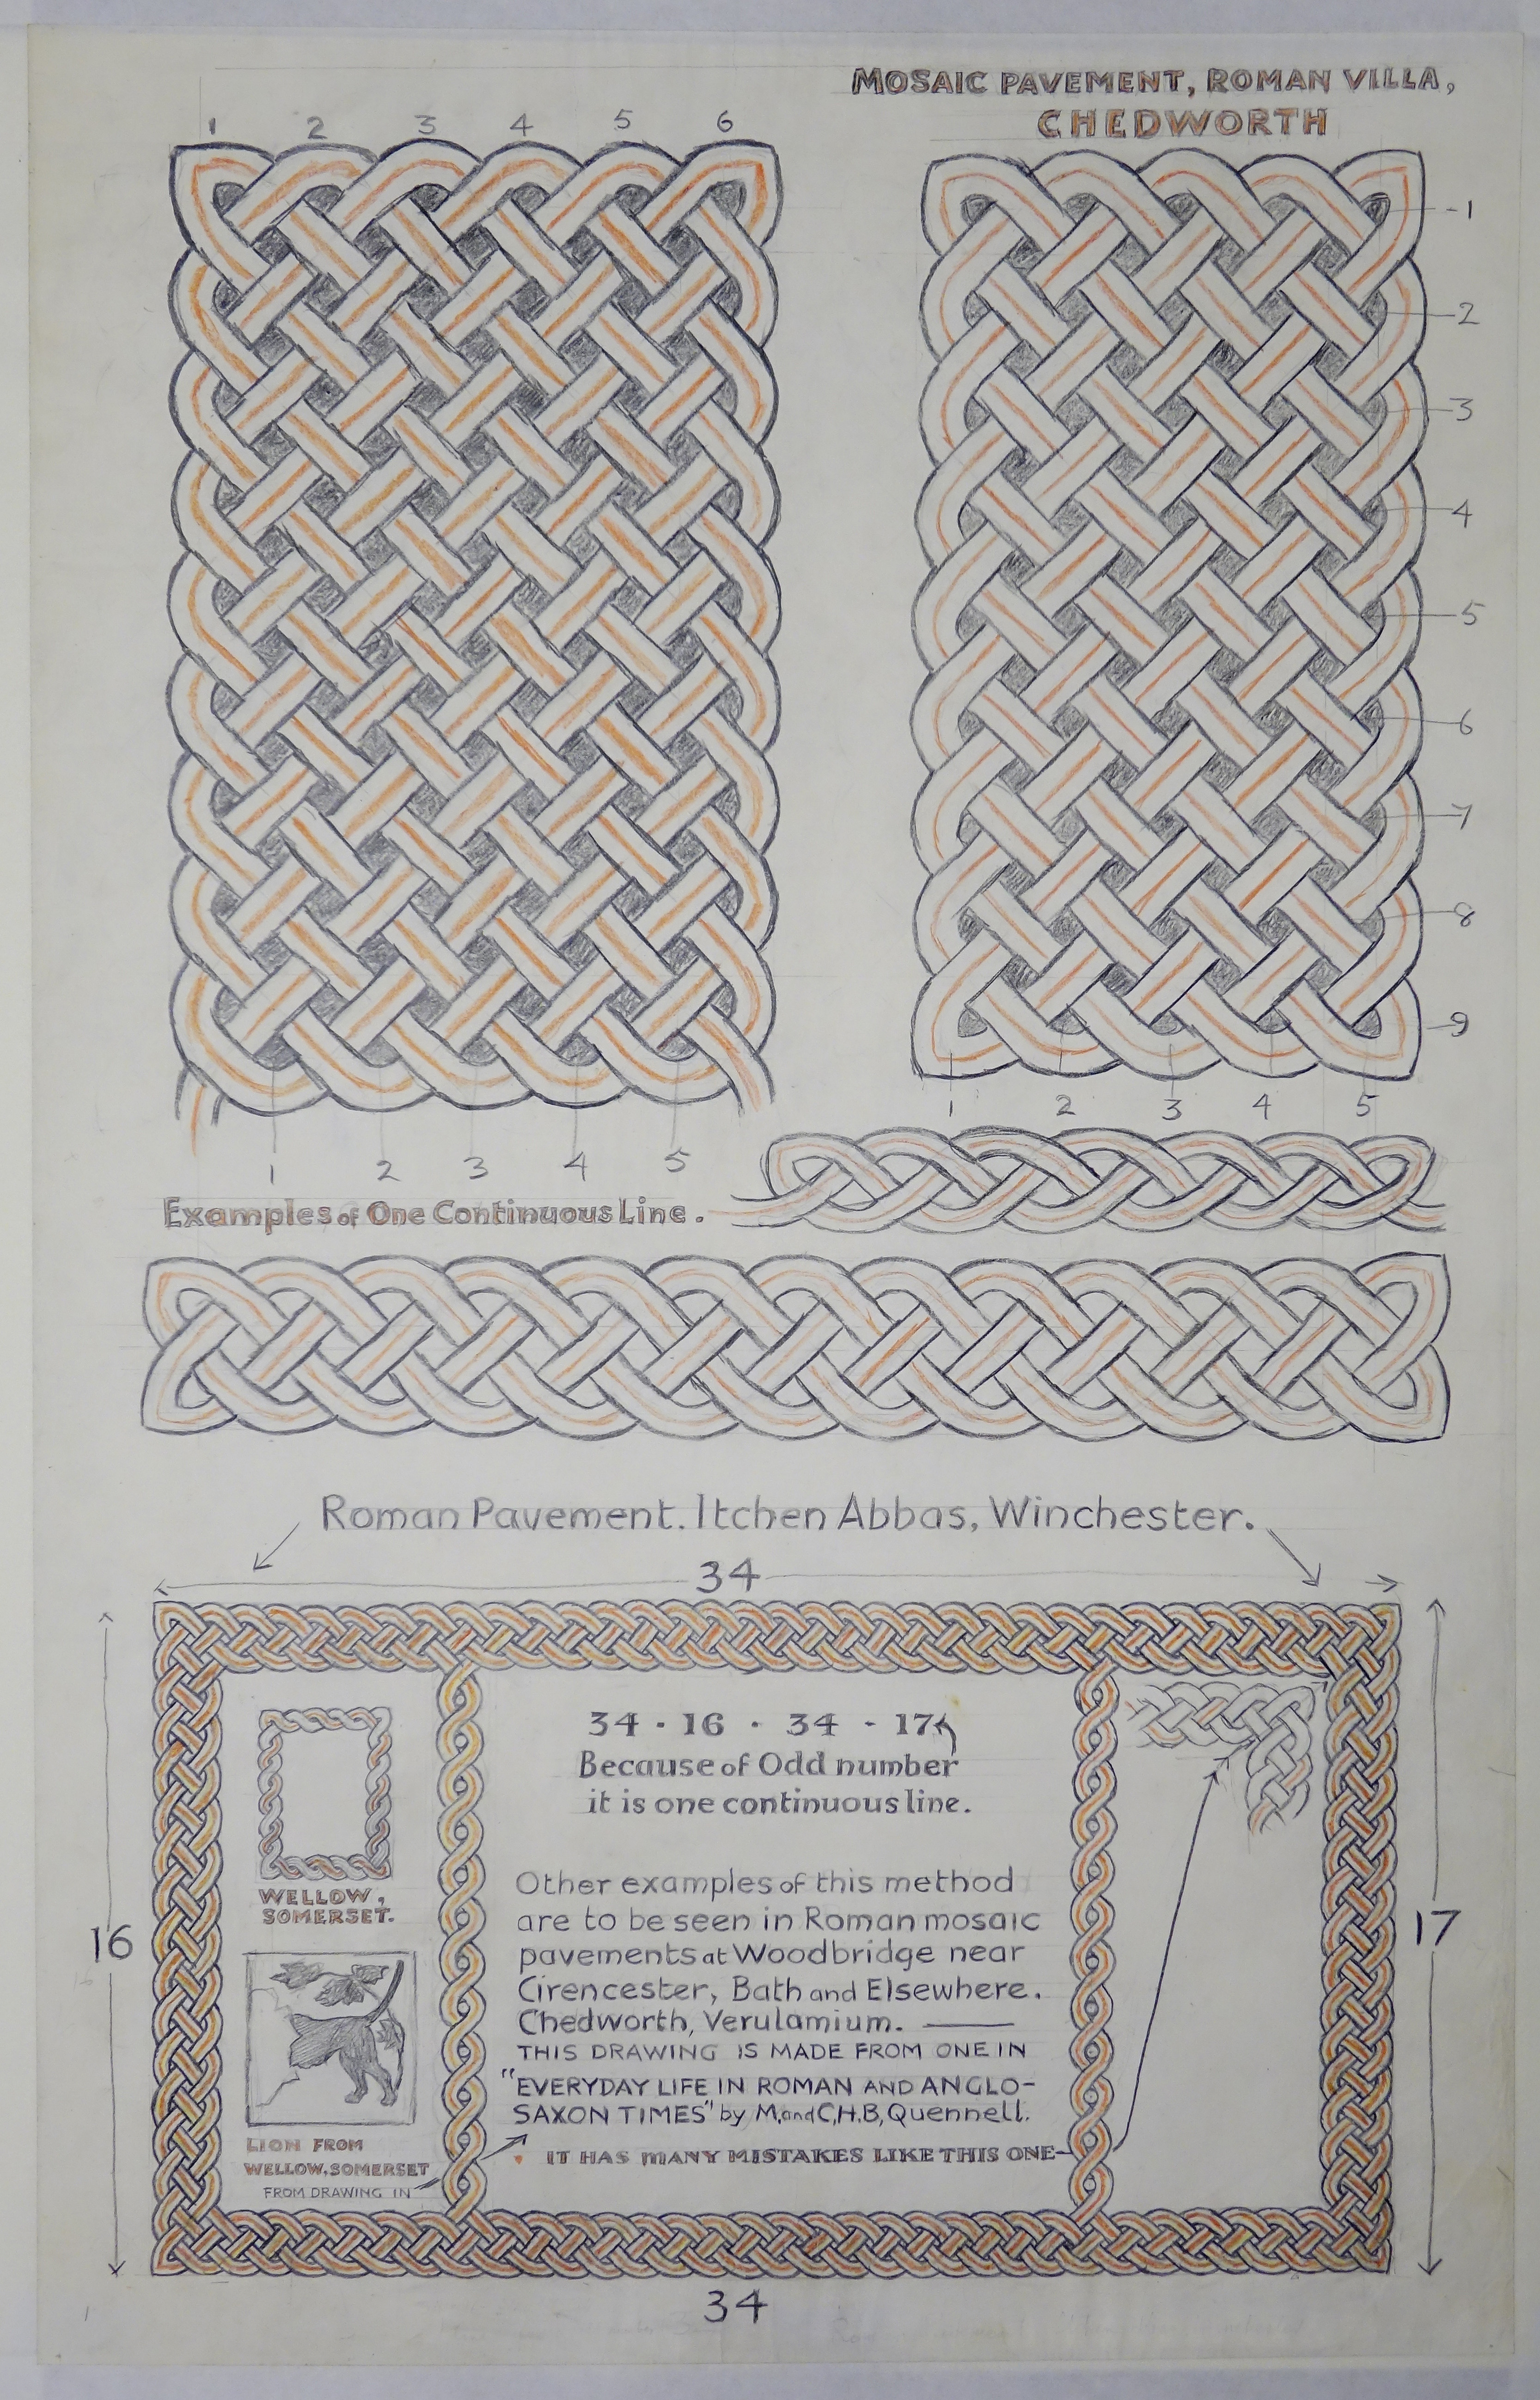 MOSAIC PAVEMENT, ROMAN VILLA,
CHEDWORTH
1 2 3 4 5 6
1
2
3
4
5
6
7
8
9
1 2 3 4 5
1 2 3 4 5
Examples of One Continuous Line.
Roman Pavement. Itchen Abbas, Winchester.
34
34 · 16 · 34 - 17
Because of Odd number
it is one continuous line.
WELLOW,
SOMERSET.
16
17
Other examples of this method
are to be seen in Roman mosaic
pavements at Woodbridge near
Cirencester, Bath and Elsewhere.
Chedworth, Verulamium. —
THIS DRAWING IS MADE FROM ONE IN
"EVERYDAY LIFE IN ROMAN AND ANGLO-
SAXON TIMES" by M. and C,H.B, Quennell.
IT HAS MANY MISTAKES LIKE THIS ONE-
LION FROM
WELLOW, SOMERSET
FROM DRAWING IN
34